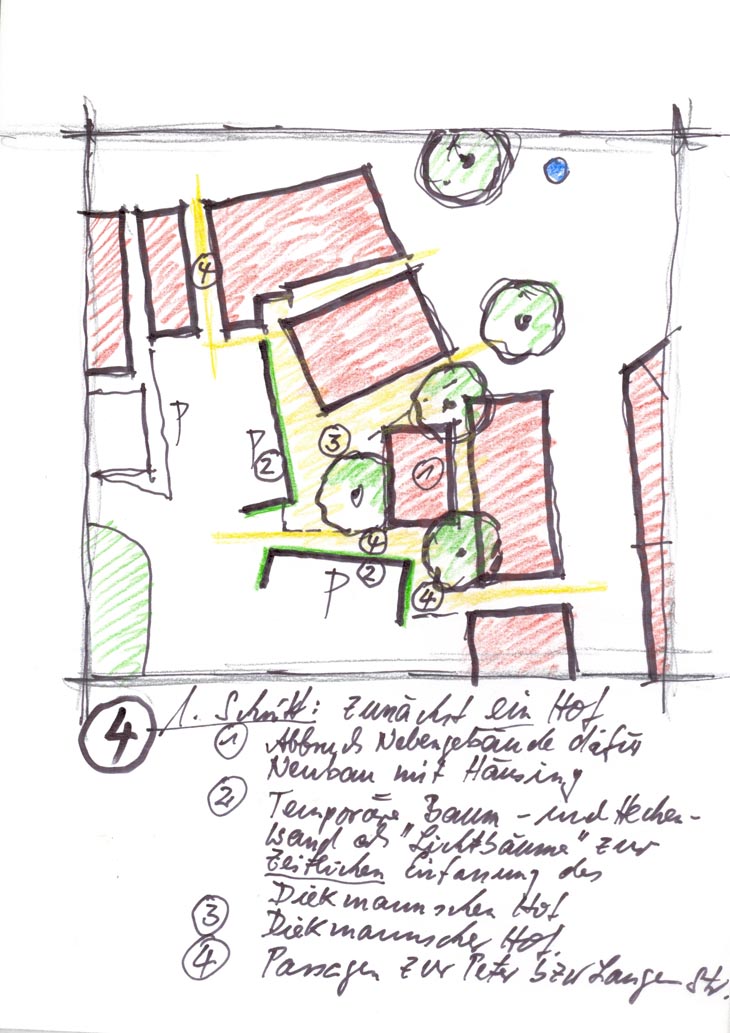 4
P
P
2
3
1
4
2
P
4
4 1. Schritt: zunächst ein Hof
1 Abbruch Nebengebäude dafür
Neubau mit Häusing
2 Temporäre Baum- und Hecken-
wand als "Lichtbäume" zur
zeitlichen Einfassung des
Diekmannschen Hof
3 Diekmannscher Hof
4 Passagen zur Peter bzur Langen Str.